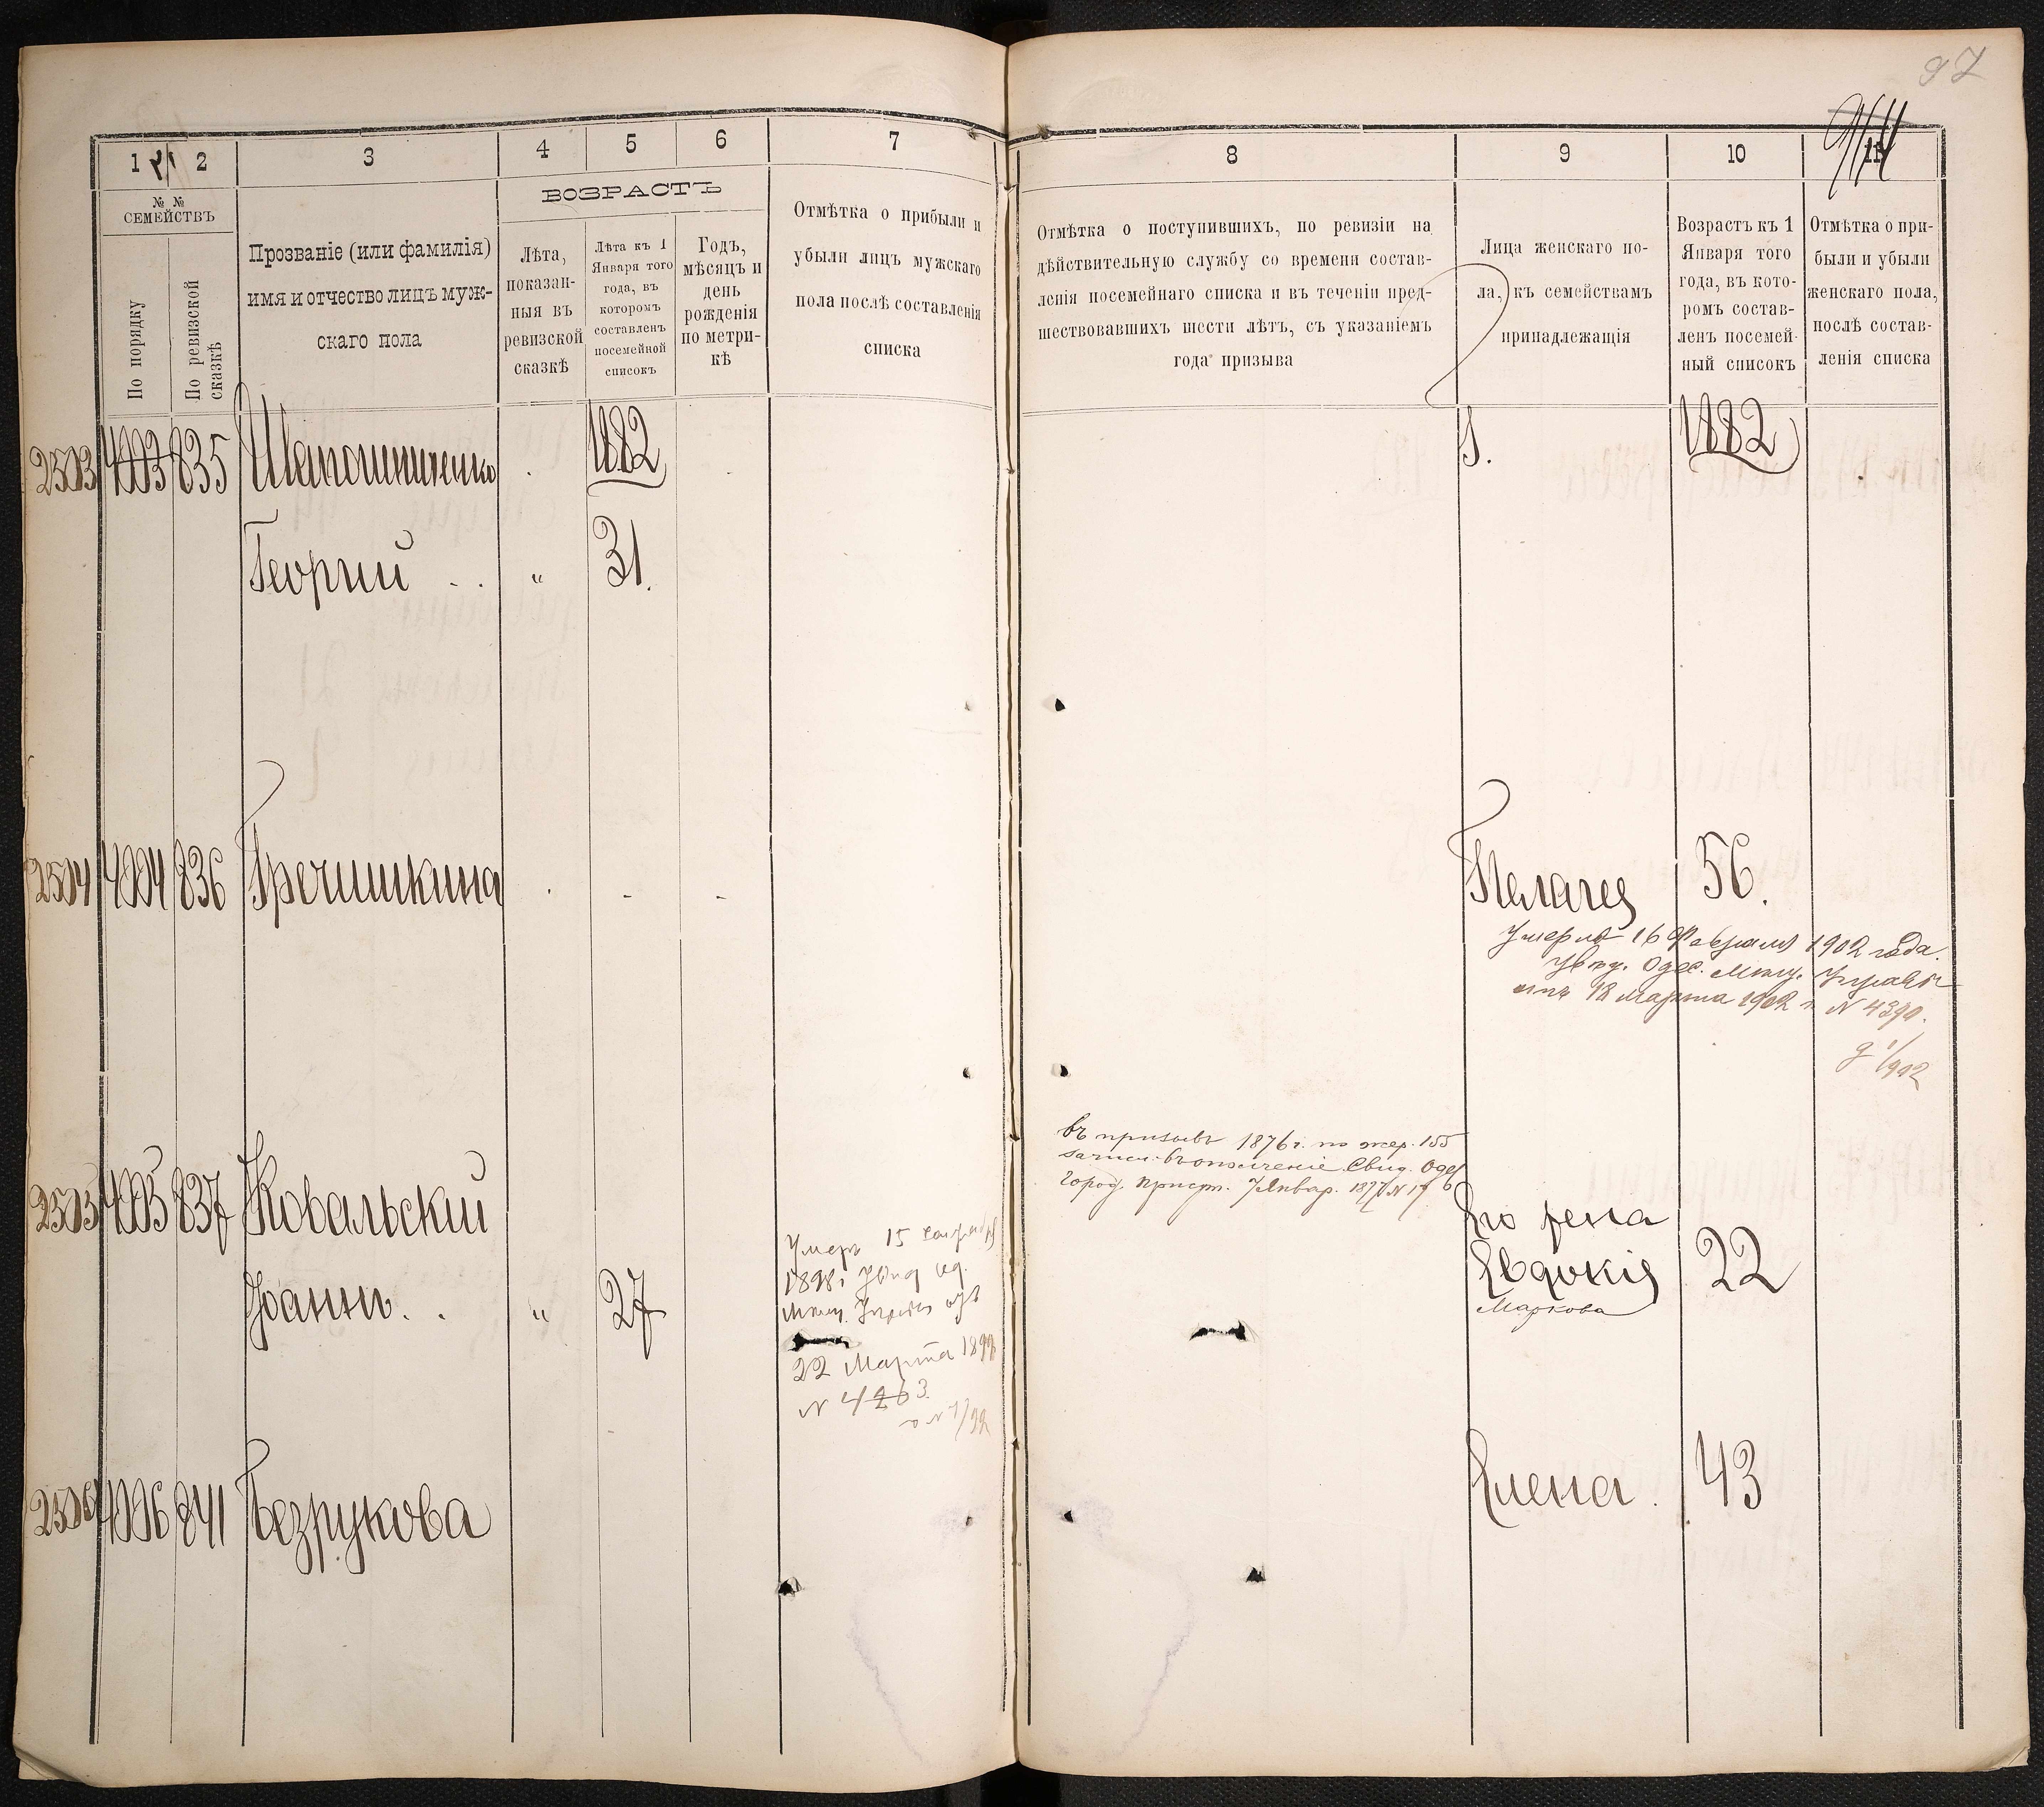 97
1
2
3
4
5
6
7
8
9
10
11
№ №
СЕМЕЙСТВЪ
По порядку
По ревизской сказкѣ
Прозваніе (или фамилія)
имя и отчество лицъ муж-
скаго пола
ВОЗРАСТЪ
Лѣта,
показан-
ныя въ
ревизской
сказкѣ
Лѣта къ 1
Января того
года, въ
которомъ
составленъ
посемейной
списокъ
Годъ,
мѣсяцъ и
день
рожденія
по метри-
кѣ
Отмѣтка о прибыли и
убыли лицъ мужскаго
пола послѣ составленія
списка
Отмѣтка о поступившихъ, по ревизіи на
дѣйствительную службу со времени состав-
ленія посемейнаго списка и въ теченіи пред-
шествовавшихъ шести лѣтъ, съ указаніемъ
года призыва
Лица женскаго по-
ла, къ семействамъ
принадлежащія
Возрастъ къ 1
Января того
года, въ кото-
ромъ состав-
ленъ посемей-
ный списокъ
Отмѣтка о при-
были и убыли
женскаго пола,
послѣ состав-
ленія списка
2503 4003 835 Шапошниченко 1882 1882
Георгий „ 31.
2504 4004 836 Гречишкина Пелагея 56.
Умерла 16 Февраля 1902 года.
Увѣд. Одес. Мѣщ. Управы
отъ 18 Марта 1902 г. N 4390.
1/902
въ призывъ 1876 г. по жер. 155
зачисл. въ ополченіе Свид. Одес
Город. Присут. 7 Январ. 1877 N 176
2505 4005 837 Ковальский Его жена
Іоаннъ „ 27 Евдокія 22
Маркова
Умеръ 15
1898 г. Увѣд Од.
Мѣщ. Управы отъ
22 Марта 1899
N 4263
2506 4006 841 Безрукова Елена. 43